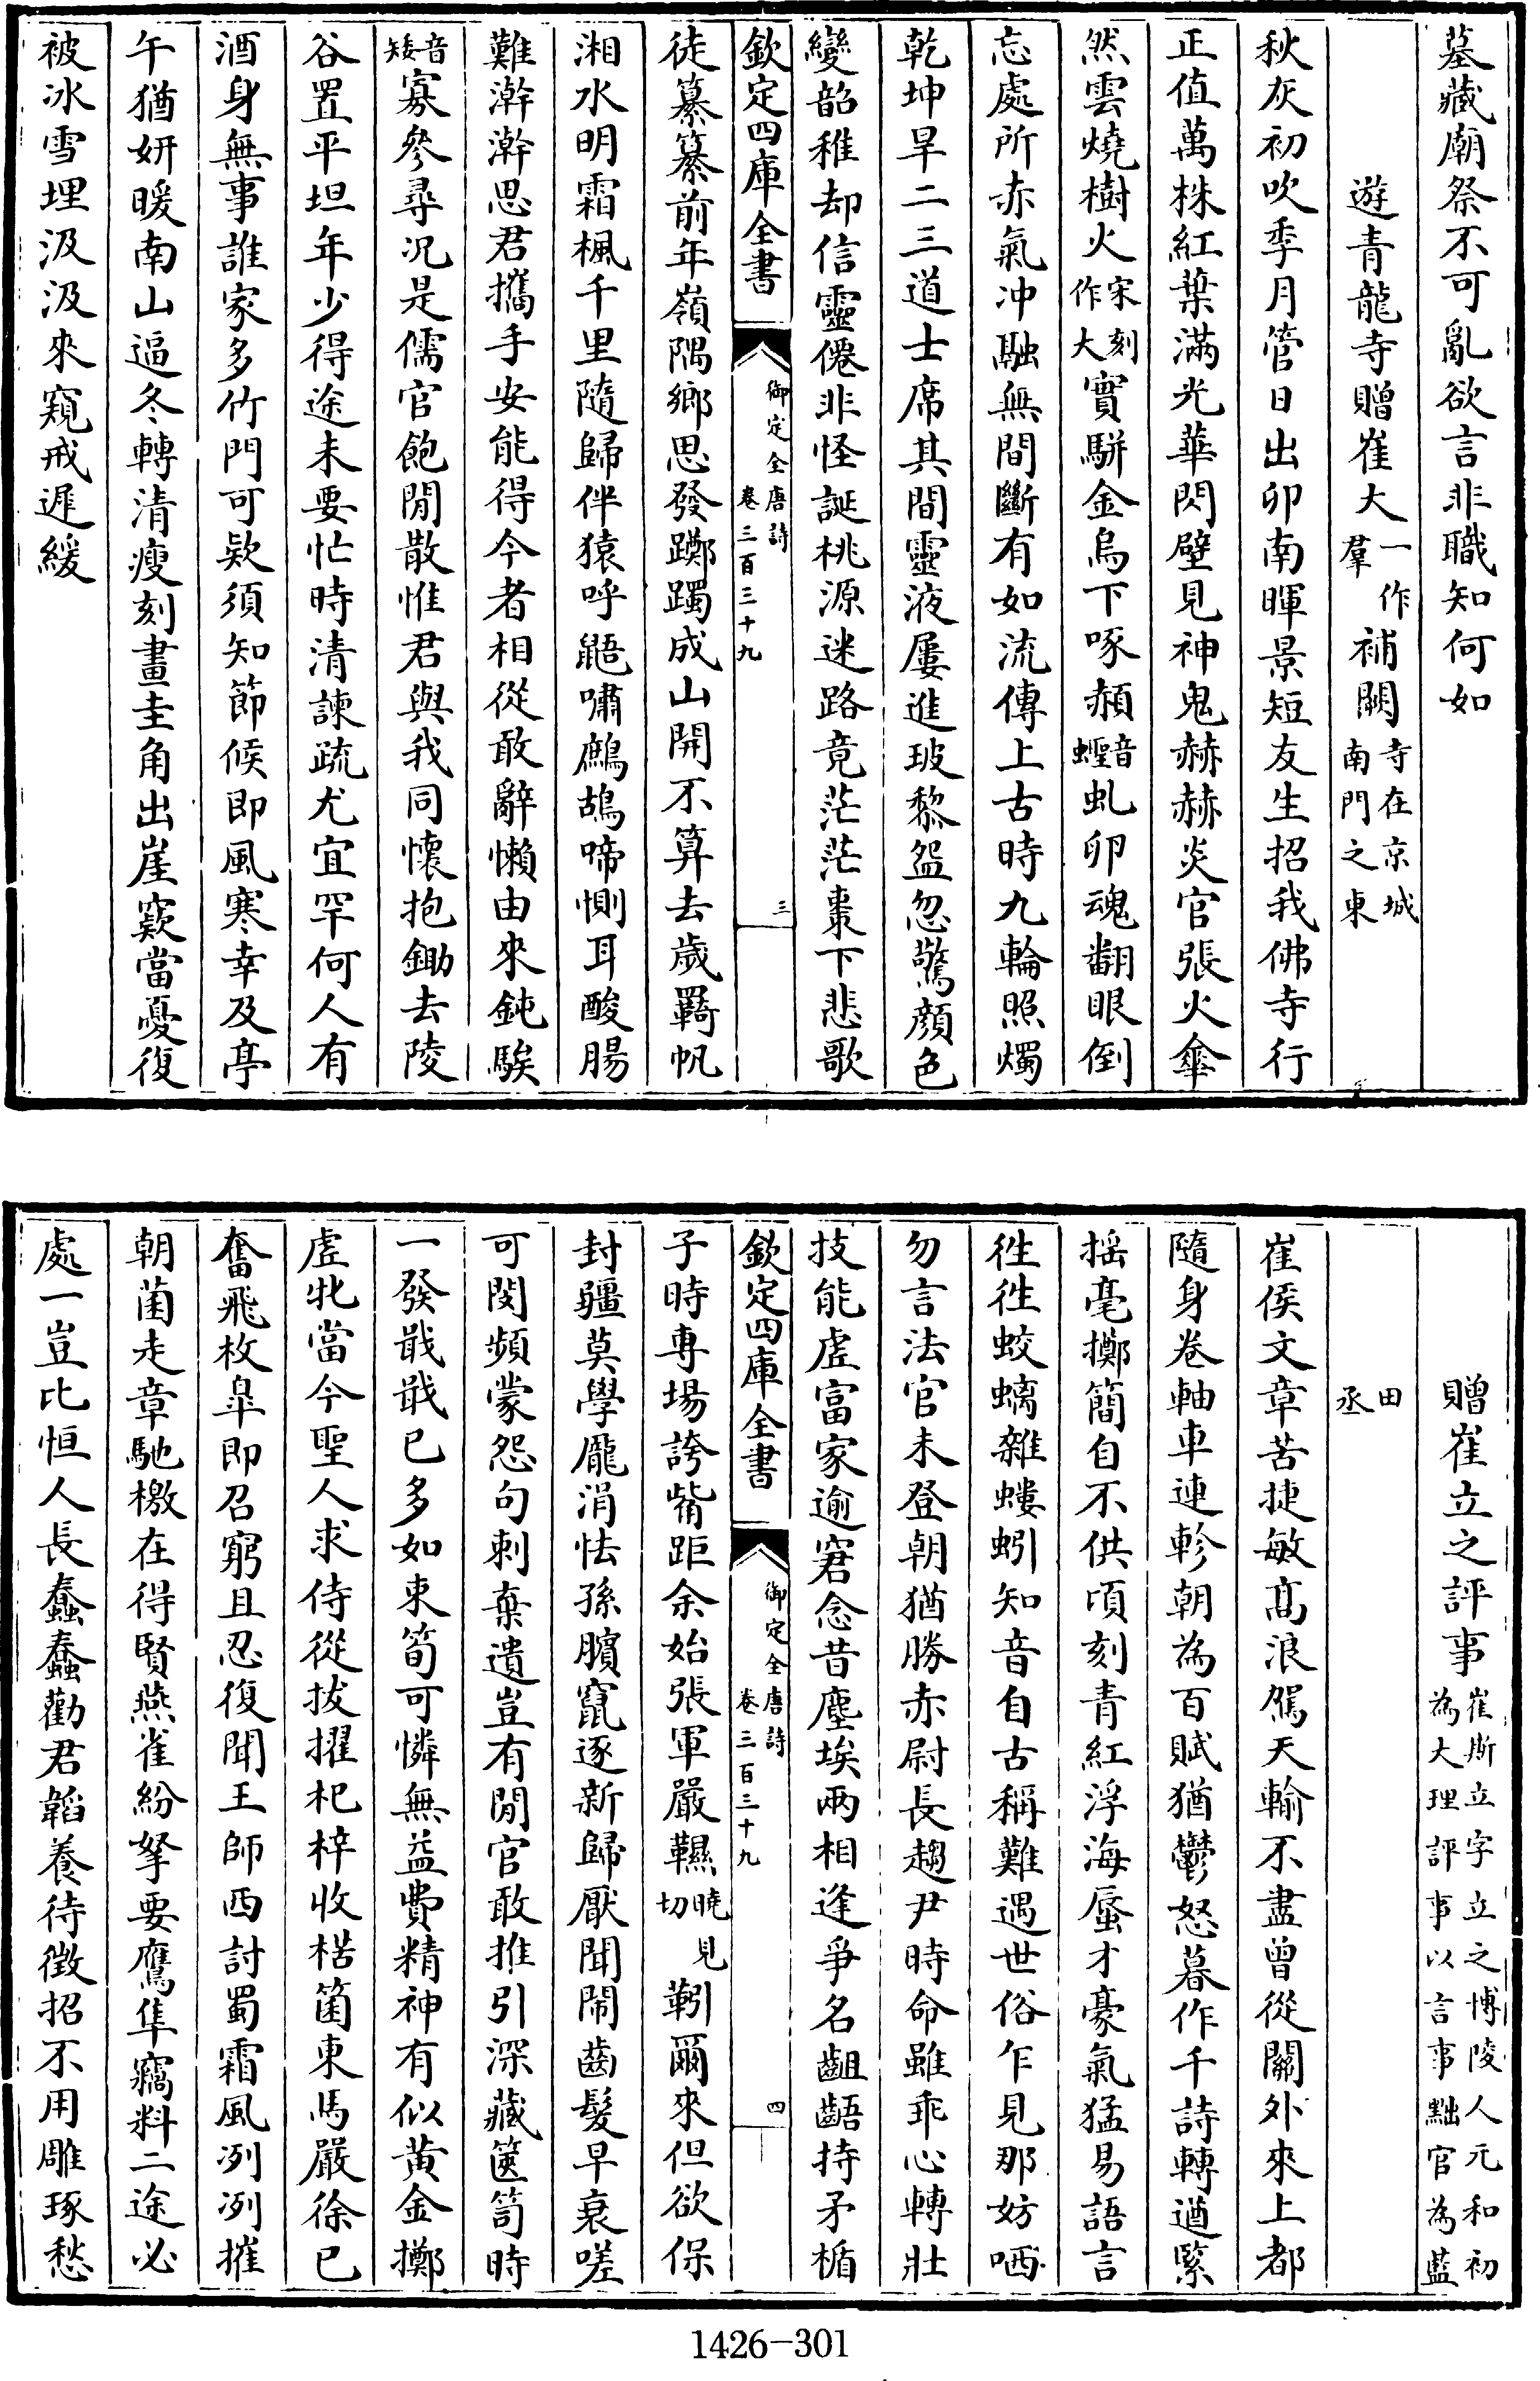 墓藏廟祭不可亂欲言非職知何如
遊青龍寺贈崔大一作羣補闕寺在京城南門之東
秋灰初吹季月管日出卯南暉景短友生招我佛寺行
正值萬株紅葉滿光華閃壁見神鬼赫赫炎官張火傘
然雲燒樹火宋刻作大實駢金烏下啄赬音蟶虬卵魂翻眼倒
忘處所赤氣冲融無間斷有如流傳上古時九輪照燭
乾坤旱二三道士席其間靈液屢進玻黎盌忽驚顏色
變韶稚却信靈僊非怪誕桃源迷路竟茫茫棗下悲歌
欽定四庫全書
御定全唐詩
卷三百三十九
三
徒纂纂前年嶺隅鄉思發躑躅成山開不算去歲羇帆
湘水明霜楓千里隨歸伴猿呼鼯嘯鷓鴣啼惻耳酸腸
難澣澣思君攜手安能得今者相從敢辭懶由來鈍騃
音矮寡參尋況是儒官飽閒散惟君與我同懷抱鋤去陵
谷置平坦年少得途未要忙時清諫疏尤宜罕何人有
酒身無事誰家多竹門可欵須知節候即風寒幸及亭
午猶妍暖南山逼冬轉清瘦刻畫圭角出崖窾當憂復
被冰雪埋汲汲來窺戒遲緩
贈崔立之評事崔斯立字立之博陵人元和初為大理評事以言事黜官為藍
田丞
崔侯文章苦捷敏高浪駕天輸不盡曾從關外來上都
隨身卷軸車連軫朝為百賦猶鬱怒暮作千詩轉遒緊
摇毫擲簡自不供頃刻青紅浮海蜃才豪氣猛易語言
徃徃蛟螭雜螻蚓知音自古稱難遇世俗乍見那妨哂
勿言法官未登朝猶勝赤尉長趨尹時命雖乖心轉壯
技能虛富家逾窘念昔塵埃兩相逢爭名齟齬持矛楯
欽定四庫全書
御定全唐詩
卷三百三十九
四
子時專場誇觜距余始張軍嚴韅曉見切靷爾來但欲保
封疆莫學龐涓怯孫臏竄逐新歸厭聞鬧齒髮早衰嗟
可閔頻蒙怨句刺棄遺豈有閒官敢推引深藏篋笥時
一發戢戢已多如束筍可憐無益費精神有似黃金擲
虛牝當今聖人求侍從拔擢杞梓收楛箘東馬嚴徐已
奮飛枚臯即召窮且忍復聞王師西討蜀霜風冽冽摧
朝菌走章馳檄在得賢燕雀紛拏要鷹隼竊料二途必
處一豈比恒人長蠢蠢勸君韜養待徵招不用雕琢愁
1426-301